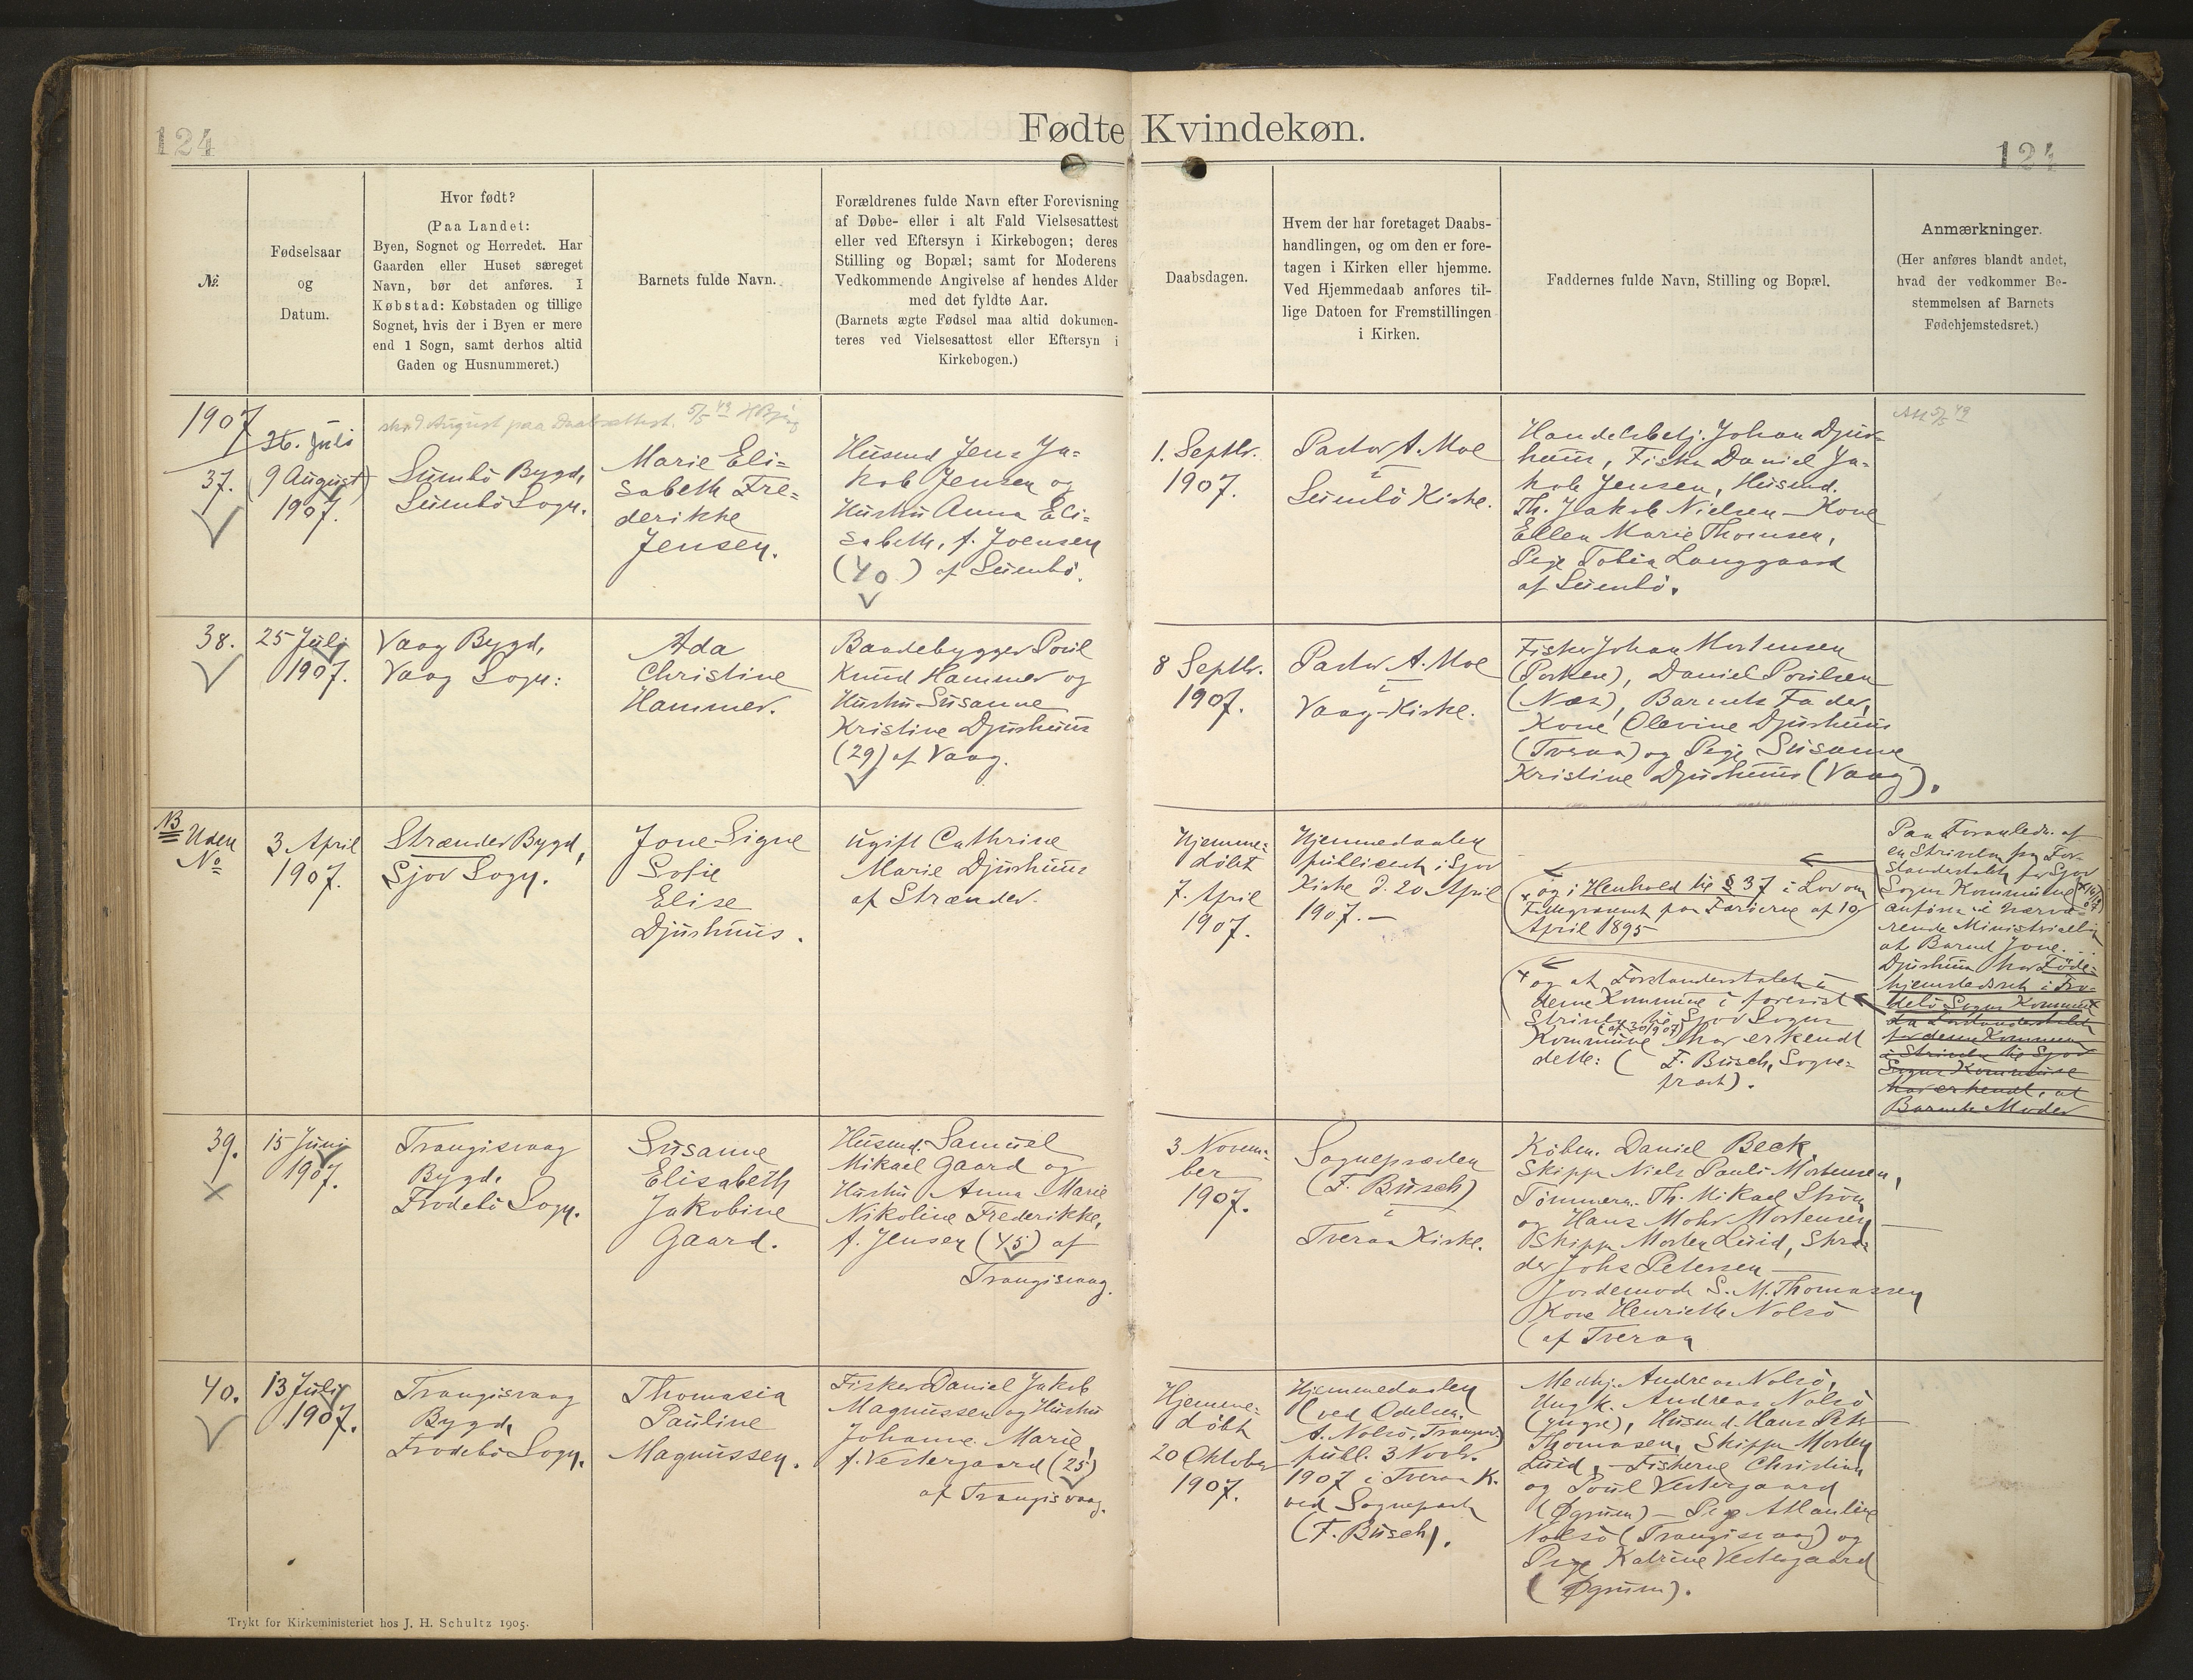 124
Fødte Kvindekøn.
124
№
Fødselsaar
og
Datum.
Hvor født?
(Paa Landet:
Byen, Sognet og Herredet. Har
Gaarden eller Huset særeget
Navn, bør det anføres. I
Købstad: Købstaden og tillige
Sognet, hvis der i Byen er mere
end 1 Sogn, samt derhos altid
Gaden og Husnummeret.)
Barnets fulde Navn.
Forældrenes fulde Navn efter Forevisning
af Døbe- eller i alt Fald Vielsesattest
eller ved Eftersyn i Kirkebogen; deres
Stilling og Bopæl; samt for Moderens
Vedkommende Angivelse af hendes Alder
med det fyldte Aar.
(Barnets ægte Fødsel maa altid dokumen-
teres ved Vielsesattest eller Eftersyn i
Kirkebogen.)
Daabsdagen.
Hvem der har foretaget Daabs-
handlingen, og om den er fore-
tagen i Kirken eller hjemme.
Ved Hjemmedaab anføres til-
lige Datoen for Fremstillingen
i Kirken.
Faddernes fulde Navn, Stilling og Bopæl.
Anmærkninger.
(Her anføres blandt andet,
hvad der vedkommer Be-
stemmelsen af Barnets
Fødehjemstedsret.)
1907
37.
26. Juli
(9 August)
1907.
August paa Daabsattest. 5/5 49
Sumbö Bygd,
Sumbö Sogn.
Marie Eli=
sabeth Fre=
derikke
Jensen.
Husmd Jens Ja=
kob Jensen og
Hustru Anna Eli=
sabeth, f. Joensen
(40) af Sumbö.
1. Septbr.
1907.
Pastor A. Moe
i
Sumbö Kirke.
Handelsbetj. Johan Djur-
huus, Fisker Daniel Ja-
kob Jensen, Husmd.
Th. Jakob Nielsen - Kone
Ellen Marie Thomsen,
Pige Tobia Langgaard
af Sumbö.
5/5 49
38.
25 Juli
1907.
Vaag Bygd,
Vaag Sogn:
Ada
Christine
Hammer.
Baadebygger Poul
Knud Hammer og
Hustru Susanne
Kristine Djurhuus
(29) af Vaag.
8 Septbr.
1907.
Pastor A. Moe
i
Vaag-Kirke.
Fisker Johan Mortensen
(Porkere), Daniel Poulsen
(Næs), Barnets Fader,
Kone Olevine Djurhuus
(Tveraa) og Pige Susanne
Kristine Djurhuus (Vaag).
NB
Uden
No
3 April
1907.
Strænder Bygd,
Sjov Sogn.
Jone Signe
Sofie
Elise
Djurhuus.
ugift Cathrine
Marie Djurhuus
af Strænder.
Hjemme=
döbt
7. April
1907.
Hjemmedaaben
publiceret i Sjov
Kirke d. 20 April
1907. -
og i Henhold til § 37 i Lov om
Fattigvæsenet paa Færöerne af 10
April 1895
og at Forstanderskabet i
denne Kommune i
Skrivelse til Sjov Sogns
(af 30/9 07)
Kommune har erkendt
dette: ( F. Busch, Sogne=
præst).
Paa Foranledn. af
en Skrivelse fra For-
standerskabet for Sjov
Sogns Kommune
anföres i nærvæ-
rende Ministerialbog
at Barnet Jone
Djurhuus har Föde-
hjemstedsret i Fro-
debö Sogns Kommune
da Forstanderskabet
for denne Kommune
i Skrivelse til Sjov
Sogns Kommune
har erkendt, at
Barnets Moder
39.
15 Juni
1907.
Trangisvaag
Bygd,
Frodebö Sogn.
Susanne
Elisabeth
Jakobine
Gaard.
Husmd. Samuel
Mikael Gaard og
Hustru Anna Marie
Nikoline Frederikke,
f. Jensen (45) af
Trangisvaag.
3 Novem=
ber
1907.
Sognepræsten
(F. Busch)
i
Tveraa Kirke.
Købm. Daniel Beck,
Skipper Niels Pauli Mortensen,
Tømmerm. Th. Mikael Ström
og Hans Mohr Mortensen,
Skipper Morten Luid, Skræ=
der Johs Petersen -
Jordemoder S. M. Thomassen
Kone Henriette Nolsö
(af Tveraa
40.
13 Juli
1907.
Trangisvaag
Bygd,
Frodebö Sogn.
Thomasia
Pauline
Magnussen.
Fisker Daniel Jakob
Magnussen og Hustru
Johanne Marie,
f. Vestergaard (25)
af Trangisvaag.
Hjemme=
döbt
20 Oktober
1907.
Hjemmedaaben
(ved
A. Nolsö,
publ. 3 Novbr.
1907 i Tveraa K.
ved Sognepræsten
(F. Busch).
Andreas Nolsö,
Ungk. Andreas Nolsö
(yngre), Husmd. Hans Peter
Thomasen, Skipper Morten
Luid, - Fiskerne Christian
og Poul Vestergaard
(Øgrum) - Pige Atlantine
Nolsö (Trangisvaag) og
Pige Katrine Vestergaard
(Øgrum).
Trykt for Kirkeministeriet hos J. H. Schultz 1905.